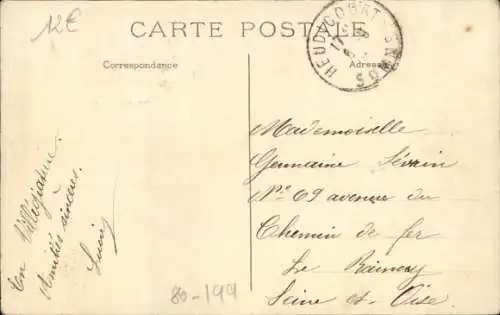 12€
CARTE POSTALE
HEUDICOURT SOMME
Correspondance
Adresse
En Villégiature.
Amitiés sincères.
Mademoiselle
Germaine Sévrin
Nº 69 avenue du
Chemin de fer
Le Raincy
Seine et Oise
80-199